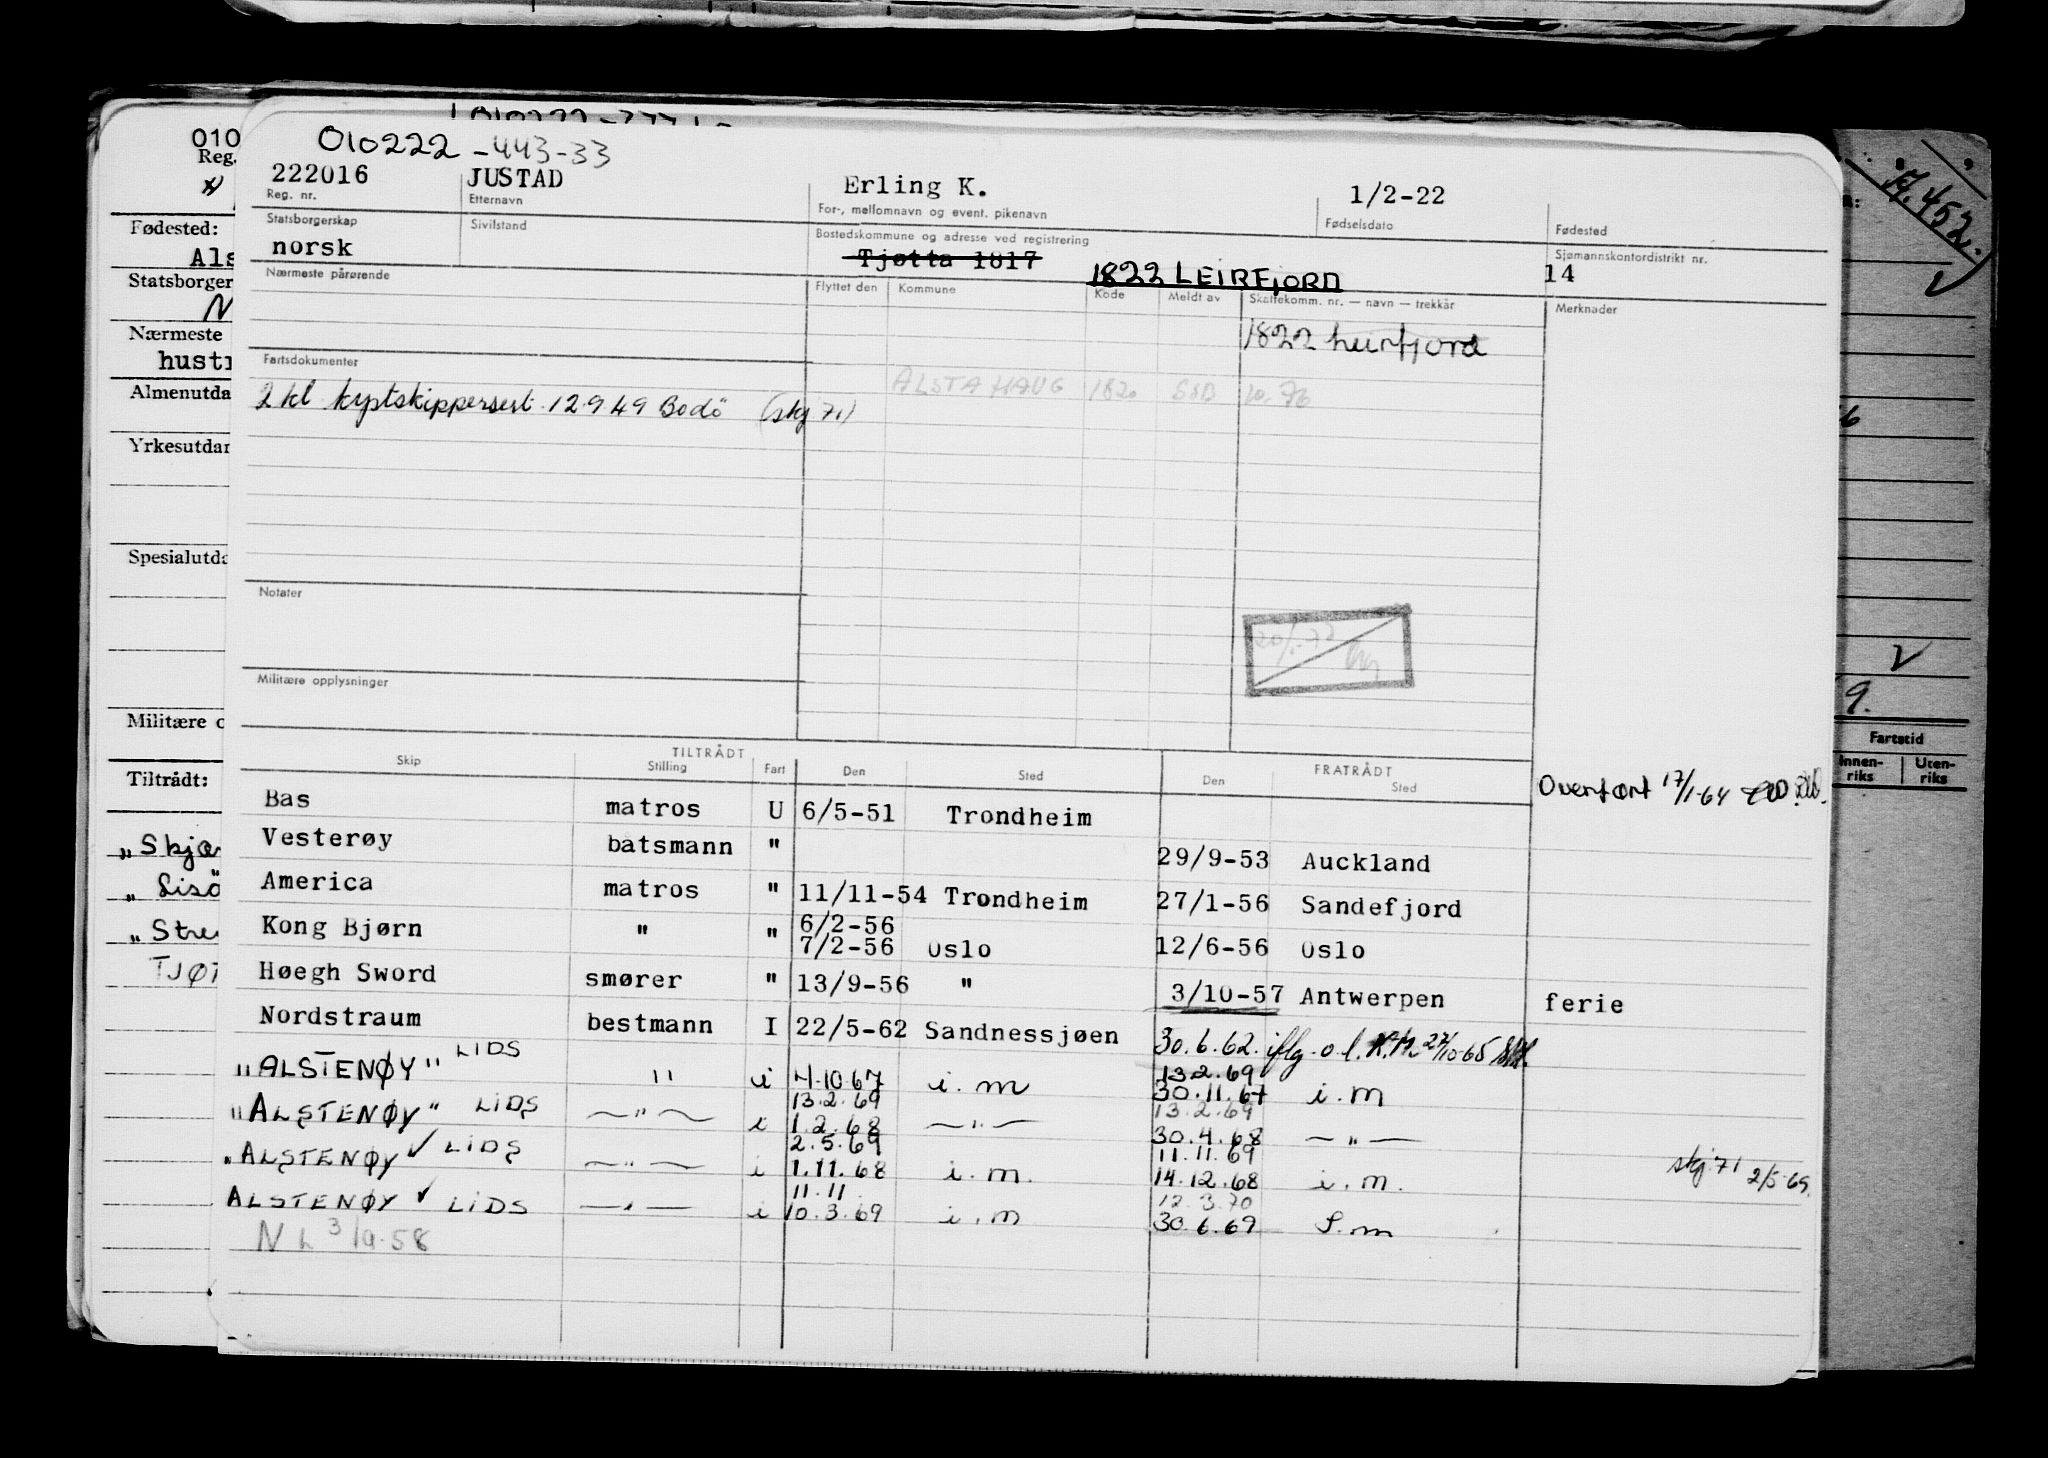 010222-443-33
222016 JUSTAD Erling K. 1/2-22
Reg. nr. Etternavn For-, mellomnavn og event. pikenavn Fødselsdato Fødested
Statsborgerskap Sivilstand Bostedskommune og adresse ved registrering Sjømannskontordistrikt nr.
norsk Tjøtta 1817 1822 LEIRFJORD 14
Nærmeste pårørende Flyttet den Kommune Kode Meldt av Skattekomm. nr. — navn — trekkår Merknader
1822 Leirfjord
Fartsdokumenter
ALSTAHAUG 1820 SSB 10.76
2 kl kystskippersert. 12.9.49 Bodö (skj 71)
Notater
Militære opplysninger
TILTRÅDT FRATRÅDT
Skip Stilling Fart Den Sted Den Sted
Overført 17/1-64
Bas matros U 6/5-51 Trondheim
Vesterøy båtsmann " 29/9-53 Auckland
America matros " 11/11-54 Trondheim 27/1-56 Sandefjord
6/2-56
Kong Bjørn " " 7/2-56 Oslo 12/6-56 Oslo
Høegh Sword smører " 13/9-56 " 3/10-57 Antwerpen ferie
Nordstraum bestmann I 22/5-62 Sandnessjøen 30.6.62. iflg. o.l. 27/10-65
"ALSTENØY" LIDS " i 4.10.67 i.m 13.2.69 30.11.67 i.m
13.2.69 13.2.69
"ALSTENØY" LIDS — " — i 1.2.68 — " — 30.4.68 — " —
2.5.69 11.11.69
"ALSTENØY ✓ LIDS — " — i 1.11.68 i.m. 14.12.68 i.m. skj 71 2/5-69.
11.11. 12.3.70
ALSTENØY ✓ LIDS — " — i 10.3.69 i.m 30.6.69 S.m
N L 3/9-58
010
Reg.
Fødested:
Als
Statsborger
N
Nærmeste
hust
Almenutda
Yrkesutdan
Spesialutda
Militære o
Tiltrådt:
"Skjær
"Lisö
"Stre
TJØT
452.
9.
Fartstid
Innen-riks Uten-riks